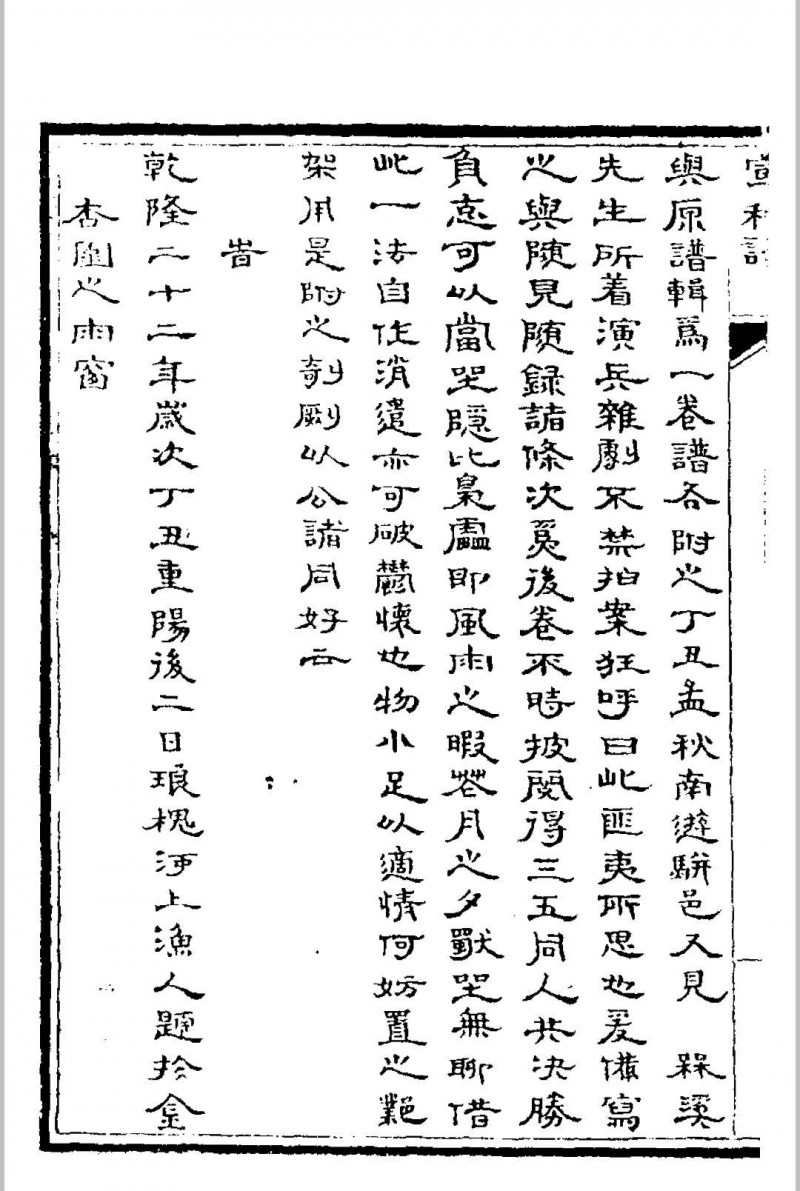 宣和譜
與原譜輯爲一卷譜各附之丁丑孟秋南遊駢邑又見 槑溪
先生所着演兵雜劇不禁拍案狂呼曰此匪夷所思也爰備寫
之與隨見隨錄諸條次後卷不時披閱得三五同人共決勝
負可以當坐隱比梟盧即風雨之暇花月之夕獸坐無聊借
此一法自作消遣亦可破鬱懷也物小足以適情何妨置之鄴
架用是附之剞劂以公諸同好云
旹
乾隆二十二年歲次丁丑重陽後二日琅槐河上漁人題於金
杏園之雨窗